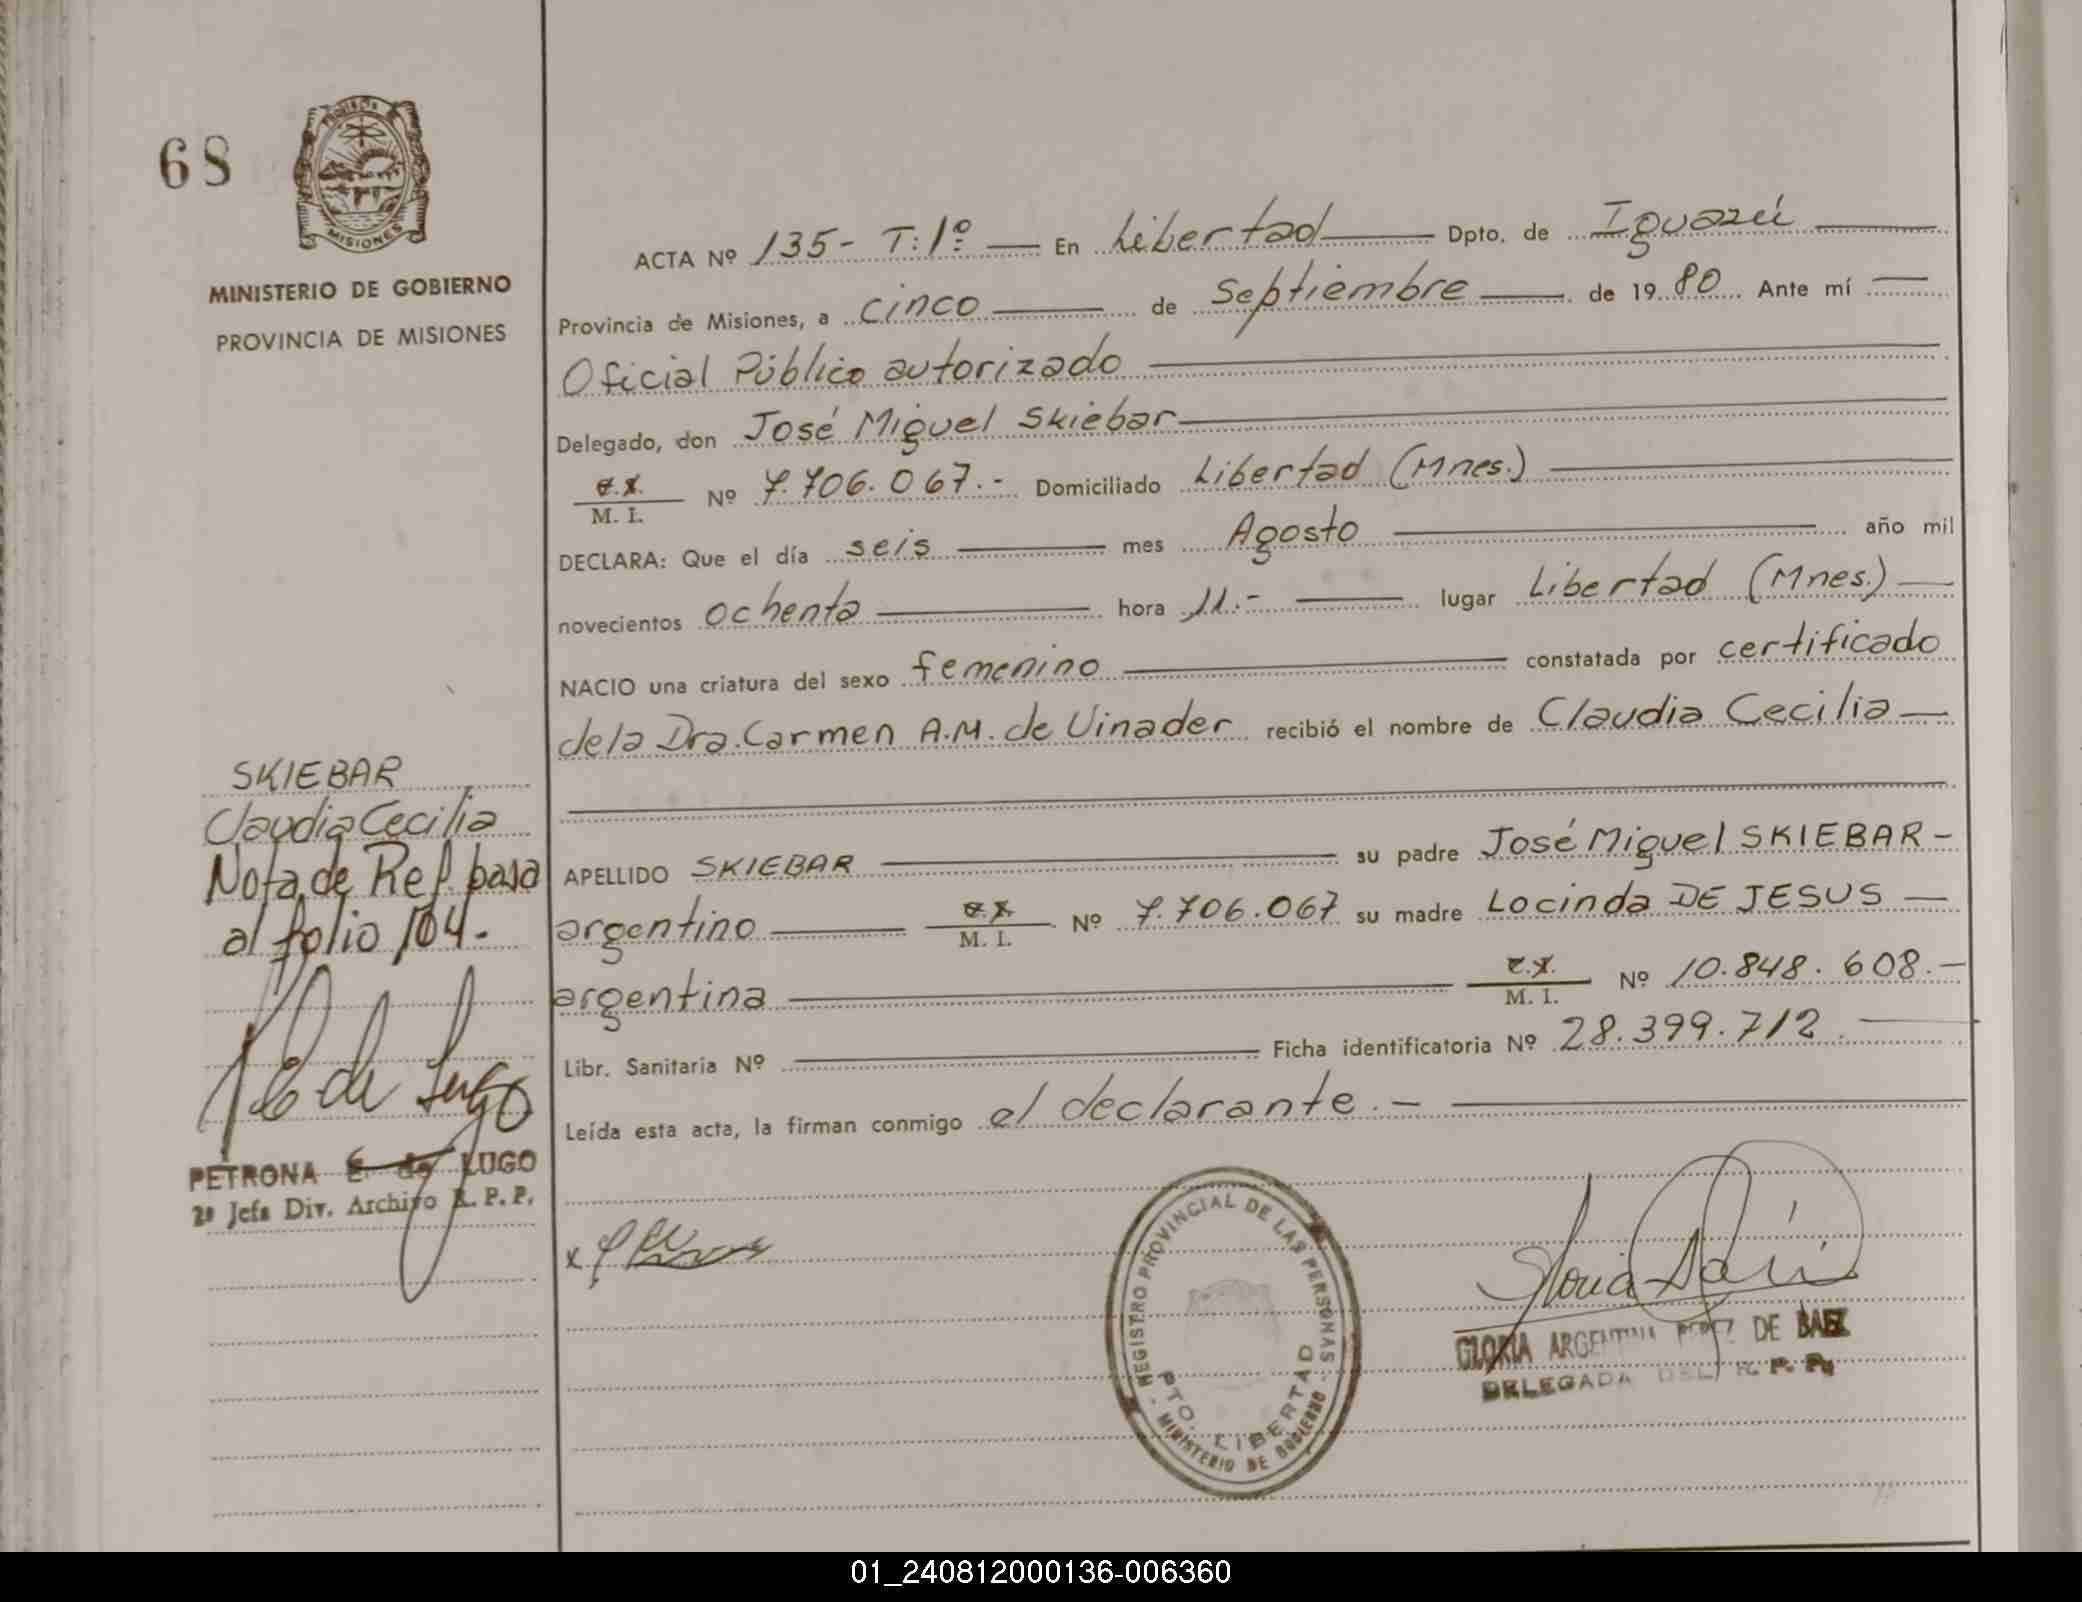 68
PROVINCIA
MISIONES
MINISTERIO DE GOBIERNO
PROVINCIA DE MISIONES
SKIEBAR
Claudia Cecilia
Nota de Ref. pasa
al folio 104.
P E de Lugo
PETRONA E. de LUGO
2ª Jefa Div. Archivo R. P. P.
ACTA Nº 135- T:1º — En Libertad — Dpto. de Iguazú —
Provincia de Misiones, a cinco — de Septiembre — de 1980 Ante mí —
Oficial Público autorizado —
Delegado, don José Miguel Skiebar —
C.I. / M. I. Nº 7.706.067.- Domiciliado Libertad (Mnes.) —
DECLARA: Que el día seis — mes Agosto — año mil
novecientos ochenta — hora 11.- — lugar Libertad (Mnes.) —
NACIO una criatura del sexo femenino — constatada por certificado
de la Dra. Carmen A.M. de Vinader recibió el nombre de Claudia Cecilia —
APELLIDO SKIEBAR — su padre José Miguel SKIEBAR -
argentino — C.I. / M. I. Nº 7.706.067 su madre Locinda DE JESUS —
argentina — C.I. / M. I. Nº 10.848.608.-
Libr. Sanitaria Nº — Ficha identificatoria Nº 28.399.712. —
Leída esta acta, la firman conmigo el declarante. - —
x
REGISTRO PROVINCIAL DE LAS PERSONAS
PTO. LIBERTAD
- MINISTERIO DE GOBIERNO -
GLORIA ARGENTINA PEREZ DE BAEZ
DELEGADA DEL R. P. P.
01_240812000136-006360